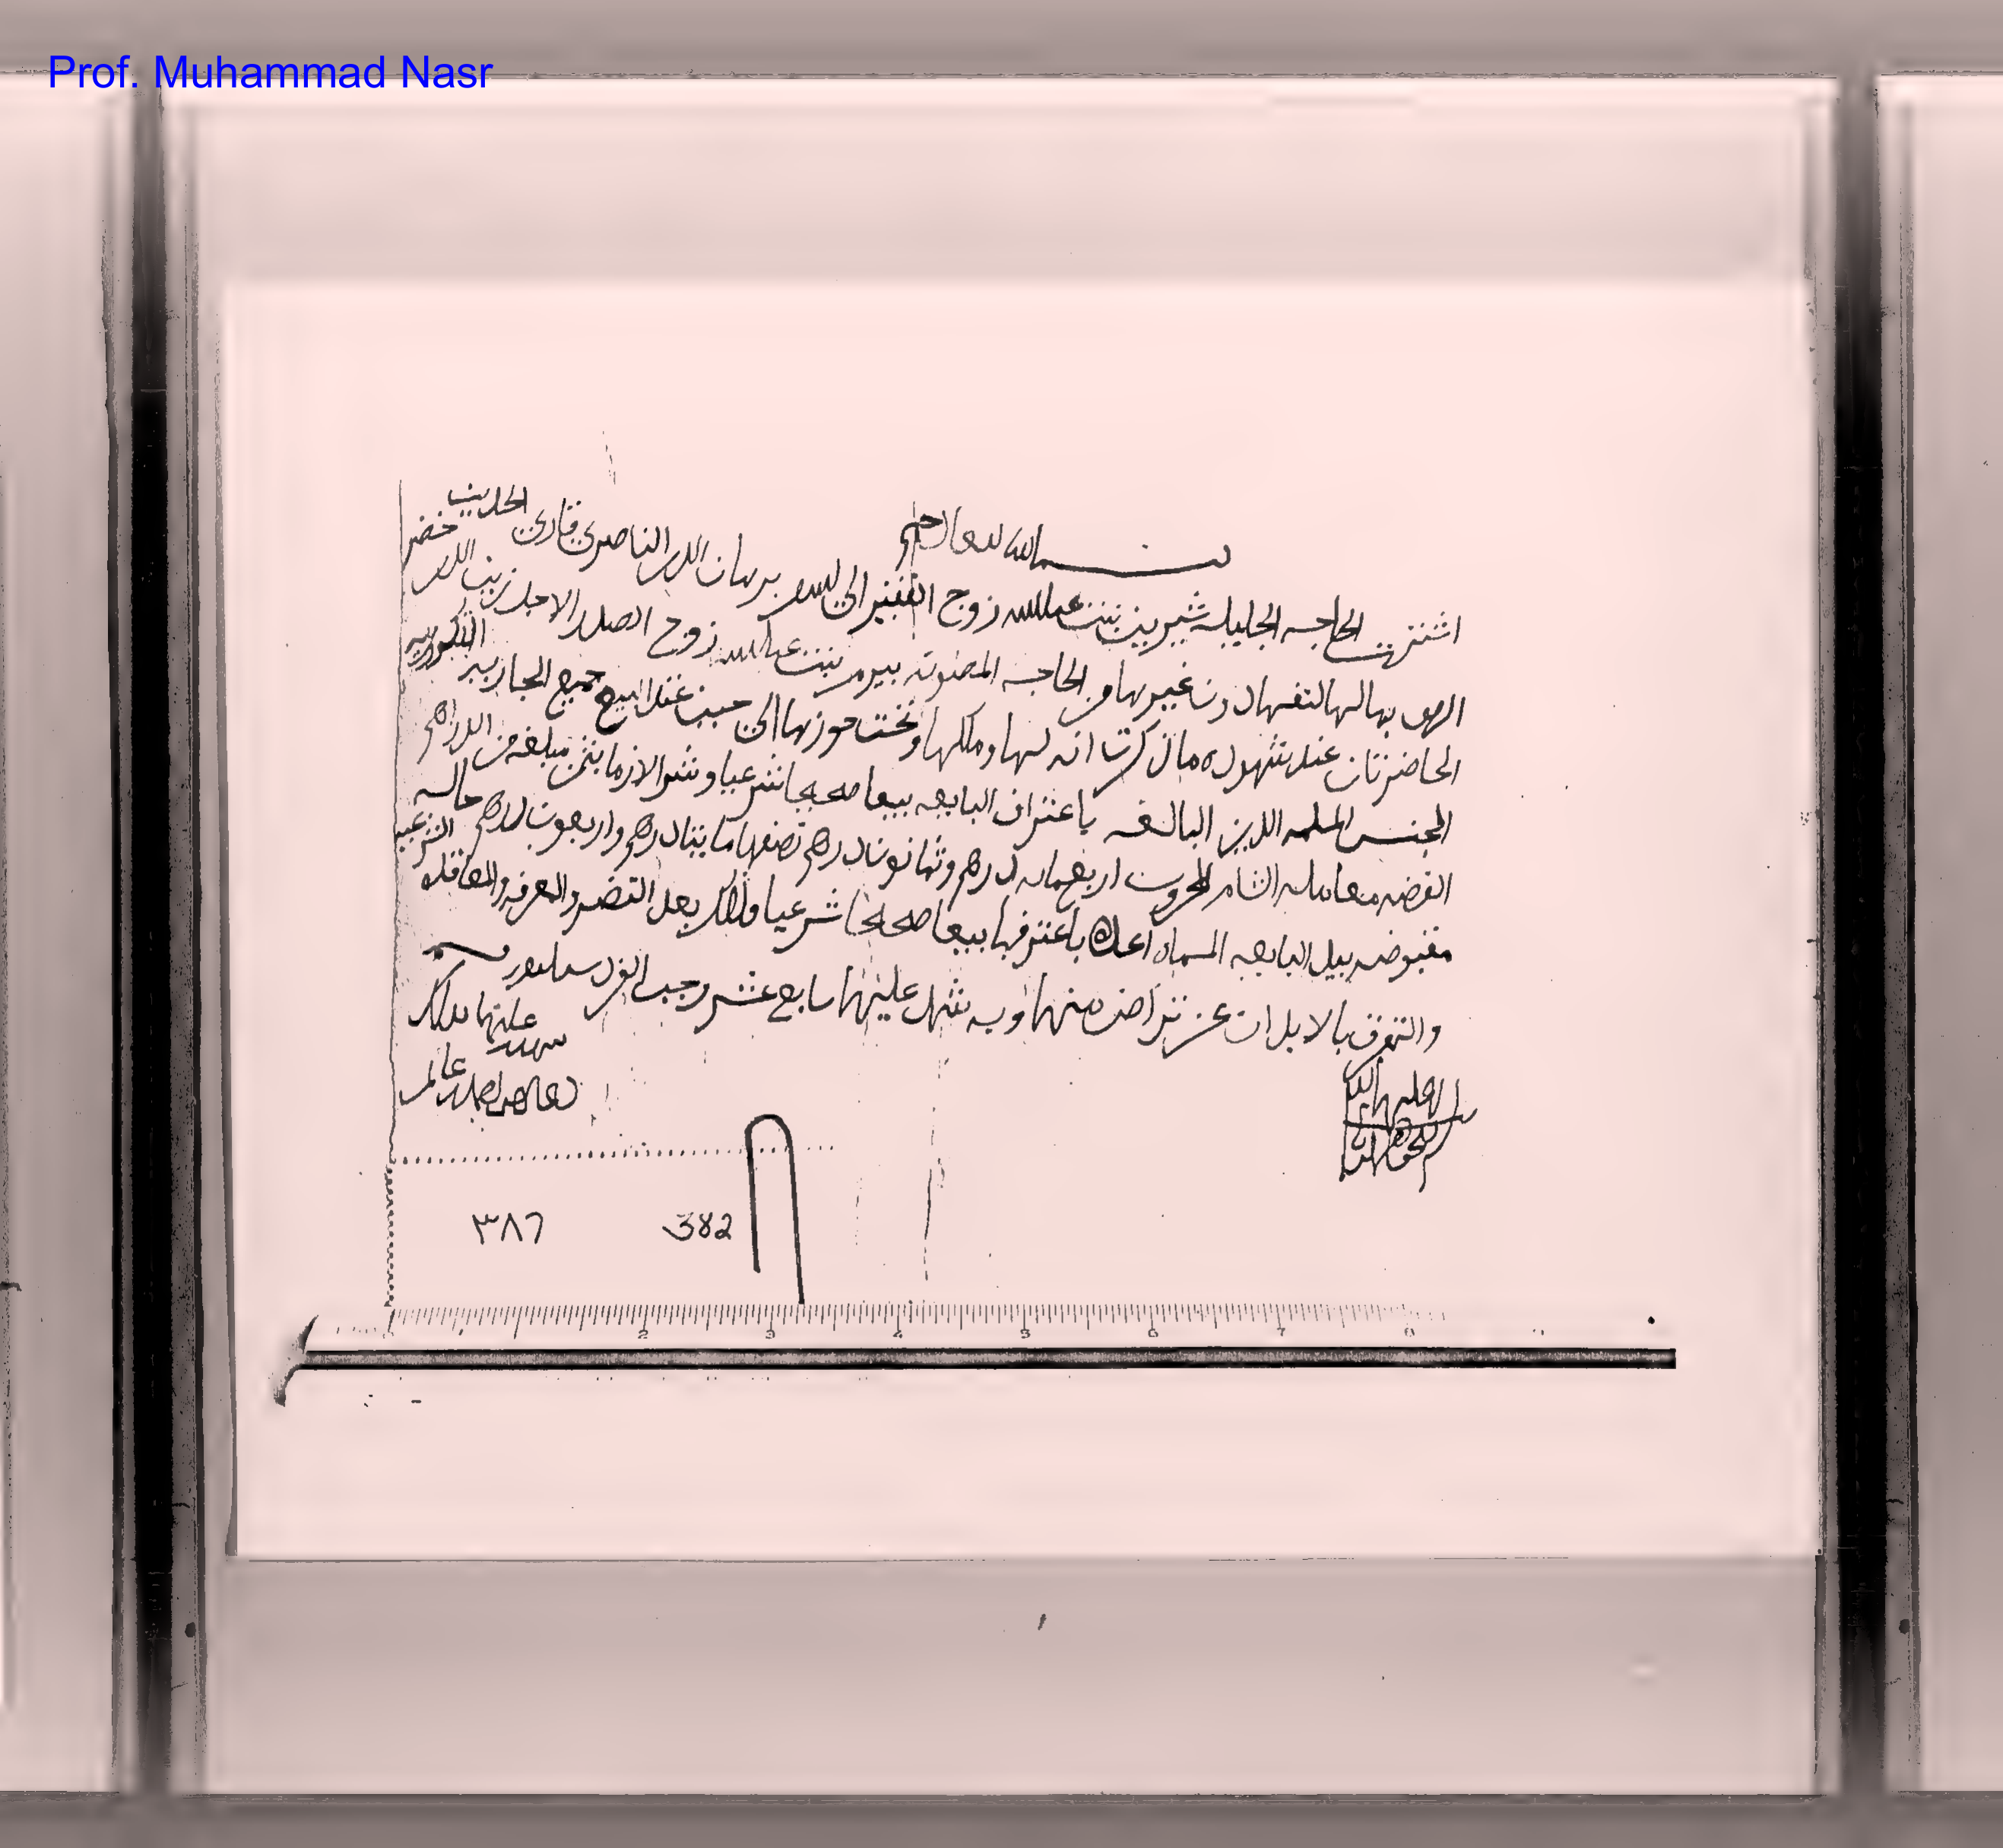 Prof. Muhammad Nasr
بسم الله الرحمن الرحيم
اشترت الحاجه الجليله شيرين بنت عبدالله زوج الفقير الى الله برهان الدين الناصري قارئ الحديث
بمالها لنفسها دون غيرها من الحاجه المصونه بيرم بنت عبدالله زوج الصدر الاجل زين الدين خضر
الحاضرتان عند شهوده ما ذكرت انه لها وملكها وتحت حوزها الى حين عقد البيع جميع الجاريه التكروريه
الجنس المسلمه الدين البالغه باعتراف البايعه بيعا صحيحا شرعيا وشرا لازما بثمن مبلغه من الدراهم
الفضه معامله الشام المحروس اربعمايه درهم وثمانون درهم نصفها مايتا درهم واربعون درهم حاله
مقبوضه بيد البايعه المسماه اعلاه باعترفها بيعا صحيحا شرعيا وذلك بعد النضر والمعرفه والمعاقده الشرعيه
والتفرق بالابدان عن تراض منهما وبه شهد عليهما سابع عشر رجب الفرد سنه
شهد عليهما بذلك
382
٣٨٦
2 3 4 5 6 7 8